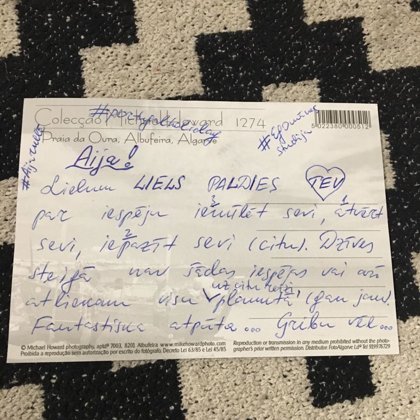 Colecção Michael Howard 1274
Praia da Oura, Albufeira, Algarve
#portugalholiday
5022380000512
Aija!
Lielum LIELS PALDIES TEV
par iespēju iemīlēt sevi, atvērt
sevi, iepazīt sevi (citu). Dzīves
steigā nav šādas iespējas vai arī
atliekam visu uz citu reizi, plānumā, gan jau!
Fantastiska atpūta... Gribu vēl...
© Michael Howard photography, aptdº 7003, 8201 Albufeira www.mikehowardphoto.com
Proibida a reprodução sem autorização por escrito do fotógrafo. Decreto Lei 63/85 e Lei 45/85
Reproduction or transmission in any medium prohibited without the photo-
grapher's prior written permission. Distributor: FotoAlgarve Ldª Tel